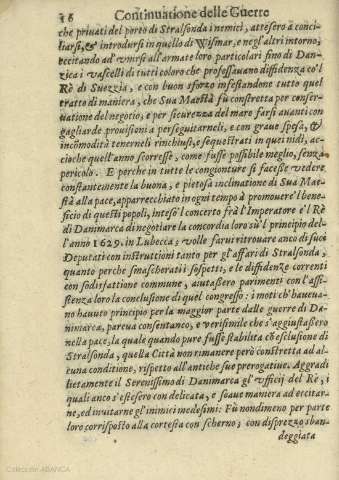 16 Continuatione delle Guerre
che priuati del porto di Stralsonda i nemici, attesero à conci-
liarsi, & introdursi in quello di VVismar, e negl'altri intorno;
eccitando ad vnirsi all'armate loro particolari fino di Dan-
zica i vascelli di tutti coloro che professauano diffidenza co'l
Rè di Suezzia, e con buon sforzo infestandone tutto quel
tratto di maniera, che Sua Maestà fù constretta per conser-
uatione del negotio, e per sicurezza del mare farsi auanti con
gagliarde prouisioni a perseguitarneli, e con graue spesa, &
incõmodità tenerneli rinchiusi, e sequestrati in quei nidi, ac-
cioche quell'anno scorresse, come fusse possibile meglio, senza
pericolo. E perche in tutte le congionture si facesse vedere
constantemente la buona, e pietosa inclinatione di Sua Mae-
stà alla pace, apparrecchiato in ogni tempo à promouere'l bene-
ficio di questi popoli, inteso'l concerto frà l'Imperatore e'l Rè
di Danimarca di negotiare la concordia loro sù'l principio del-
l'anno 1629. in Lubecca; volle farui ritrouare anco di suoi
Deputati con instruttioni tanto per gl'affari di Stralsonda,
quanto perche smascherati i sospetti, e le diffidẽze correnti
con sodisfattione commune, aiutassero parimenti con l'assi-
stenza loro la conclusione di quel congresso: i moti ch'haueua-
no hauuto principio per la maggior parte dalle guerre di Da-
nimarca, pareua consentaneo, e verisimile che s'aggiustassero
nella pace, la quale quando pure fusse stabilita cõ esclusione di
Stralsonda, quella Città non rimanere però constretta ad al-
cuna conditione, rispetto all'antiche sue prerogatiue. Aggradì
lietamente il Serenissimo di Danimarca gl'vfficij del Rè, i
quali anco s'estesero con delicata, e soaue maniera ad eccitar-
ne, ed inuitarne gl'inimici medesimi: Fù nondimeno per parte
loro corrisposto alla cortesia con scherno; con disprezzo sban-
deggiata
Colección ABANCA